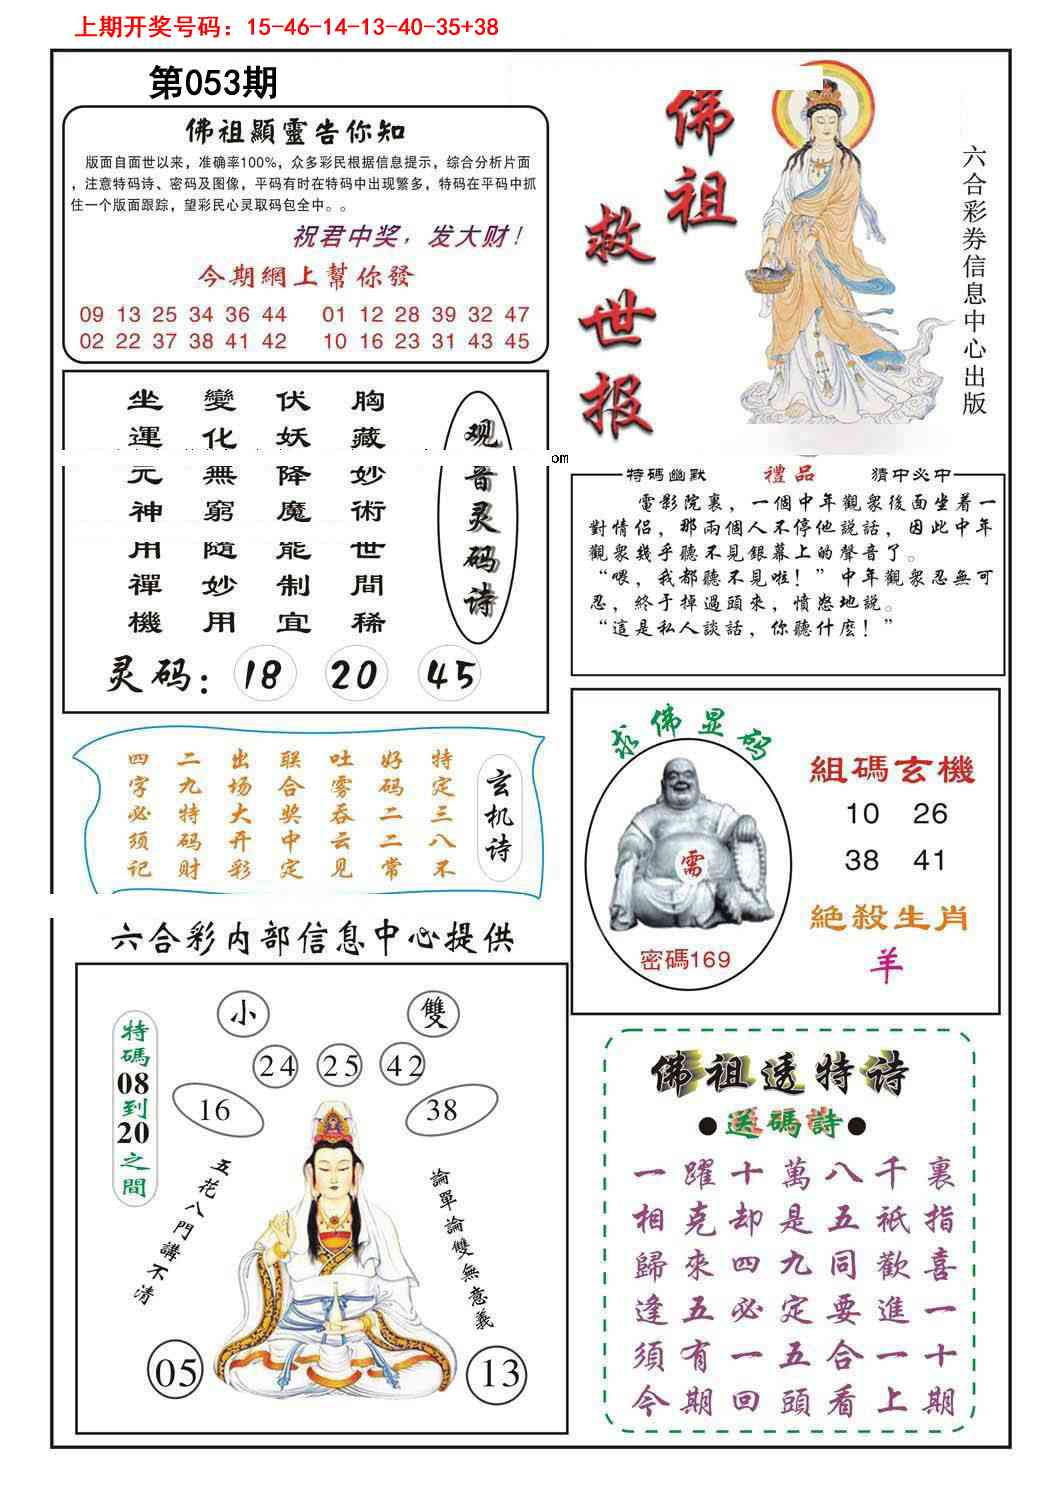 上期开奖号码：15-46-14-13-40-35+38
第053期
佛祖顯靈告你知
版面自面世以来，准确率100%，众多彩民根据信息提示，综合分析片面
，注意特码诗、密码及图像，平码有时在特码中出现繁多，特码在平码中抓
住一个版面跟踪，望彩民心灵取码包全中。。
祝君中奖，发大财！
今期網上幫你發
09 13 25 34 36 44 01 12 28 39 32 47
02 22 37 38 41 42 10 16 23 31 43 45
佛祖
救世报
六合彩券信息中心出版
观音灵码诗
胸藏妙術世間稀
伏妖降魔能制宜
變化無窮隨妙用
坐運元神用禪機
灵码：18 20 45
om
特碼幽默 禮品 猜中必中
電影院裏，一個中年觀衆後面坐着一
對情侣，那兩個人不停他説話，因此中年
觀衆幾乎聽不見銀幕上的聲音了。
“喂，我都聽不見啦！”中年觀衆忍無可
忍，終于掉過頭來，憤怒地説。
“這是私人談話，你聽什麽！”
玄机诗
特定三八不
好码二二常
吐雾吞云见
联合奖中定
出场大开彩
二九特码财
四字必须记
求佛显码
需
密碼169
組碼玄機
10 26
38 41
絶殺生肖
羊
六合彩内部信息中心提供
特碼08到20之間
小 雙
24 25 42
16 38
五花八門講不清
論單論雙無意義
05 13
佛祖透特诗
●送碼詩●
一躍十萬八千裏
相克却是五衹指
歸來四九同歡喜
逢五必定要進一
須有一五合一十
今期回頭看上期